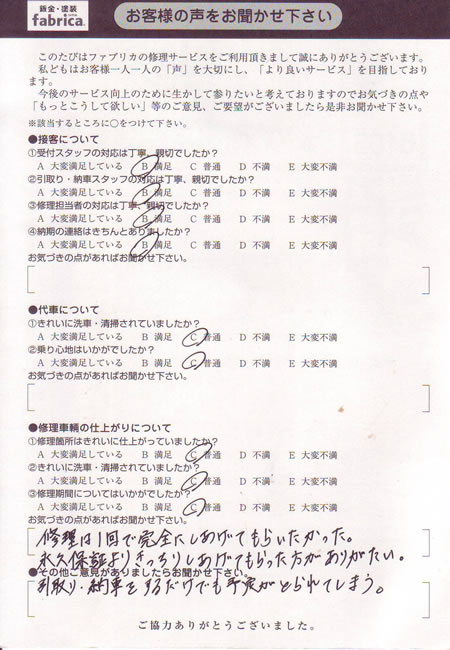 鈑金・塗装
fabrica.
お客様の声をお聞かせ下さい
このたびはファブリカの修理サービスをご利用頂きまして誠にありがとうございます。
私どもはお客様一人一人の「声」を大切にし、「より良いサービス」を目指しております。
今後のサービス向上のために生かして参りたいと考えておりますのでお気づきの点や
「もっとこうして欲しい」等のご意見、ご要望がございましたら是非お聞かせ下さい。
※該当するところに○をつけて下さい。
●接客について
①受付スタッフの対応は丁寧、親切でしたか?
A 大変満足している B 満足 C 普通 D 不満 E 大変不満
②引取り・納車スタッフの対応は丁寧、親切でしたか?
A 大変満足している B 満足 C 普通 D 不満 E 大変不満
③修理担当者の対応は丁寧、親切でしたか?
A 大変満足している B 満足 C 普通 D 不満 E 大変不満
④納期の連絡はきちんとありましたか?
A 大変満足している B 満足 C 普通 D 不満 E 大変不満
お気づきの点があればお聞かせ下さい。
●代車について
①きれいに洗車・清掃されていましたか?
A 大変満足している B 満足 C 普通 D 不満 E 大変不満
②乗り心地はいかがでしたか?
A 大変満足している B 満足 C 普通 D 不満 E 大変不満
お気づきの点があればお聞かせ下さい。
●修理車輌の仕上がりについて
①修理箇所はきれいに仕上がっていましたか?
A 大変満足している B 満足 C 普通 D 不満 E 大変不満
②きれいに洗車・清掃されていましたか?
A 大変満足している B 満足 C 普通 D 不満 E 大変不満
③修理期間についてはいかがでしたか?
A 大変満足している B 満足 C 普通 D 不満 E 大変不満
お気づきの点があればお聞かせ下さい。
修理は1回で完全にしあげてもらいたかった。
永久保証よりきっちりしあげてもらった方がありがたい。
●その他ご意見がありましたらお聞かせ下さい。
引取り・納車をするだけでも予定がとられてしまう。
ご協力ありがとうございました。